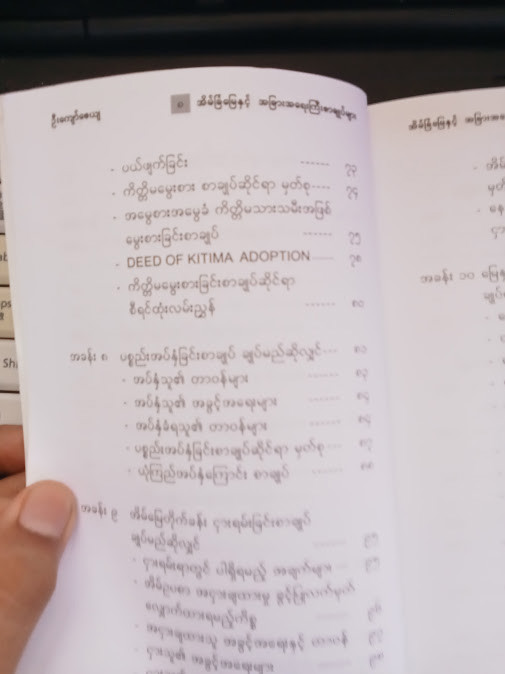 ဦးကျော်ဇေယျ
အိမ်ခြံမြေနှင့် အခြားအရေးကြီးစာချုပ်များ
- ပယ်ဖျက်ခြင်း ------ ၇၃
- ကိတ္တိမမွေးစား စာချုပ်ဆိုင်ရာ မှတ်စု---- ၇၄
- အမွေစားအမွေခံ ကိတ္တိမသားသမီးအဖြစ်
မွေးစားခြင်းစာချုပ် ------ ၇၅
- DEED OF KITIMA ADOPTION ---- ၇၈
- ကိတ္တိမမွေးစားခြင်းစာချုပ်ဆိုင်ရာ
စီရင်ထုံးလမ်းညွှန် ------ ၈၀
အခန်း ၈ ပစ္စည်းအပ်နှံခြင်းစာချုပ် ချုပ်မည်ဆိုလျှင်---
- အပ်နှံသူ၏ တာဝန်များ ------ ၈၃
- အပ်နှံသူ၏ အခွင့်အရေးများ ------ ၈၄
- အပ်နှံခံရသူ၏ တာဝန်များ ------ ၈၄
- ပစ္စည်းအပ်နှံခြင်းစာချုပ်ဆိုင်ရာ မှတ်စု--- ၈၇
- ယုံကြည်အပ်နှံကြောင်း စာချုပ် ------ ၈၈
အခန်း ၉ အိမ်မြေတိုက်ခန်း ငှားရမ်းခြင်းစာချုပ်
ချုပ်မည်ဆိုလျှင် ------
- ငှားရမ်းရာတွင် ပါရှိရမည့် အချက်များ ----
- အိမ်ဥပစာ အငှားချထားမှု ခွင့်ပြုလက်မှတ်
လျှောက်ထားရမည့်ကိစ္စ
- အငှားချထားသူ အခွင့်အရေးနှင့် တာဝန် ၉၇
- ငှားသူ၏ အခွင့်အရေးများ ------
အိမ်ခြံမြေနှင့်
အခန်း ၁၀